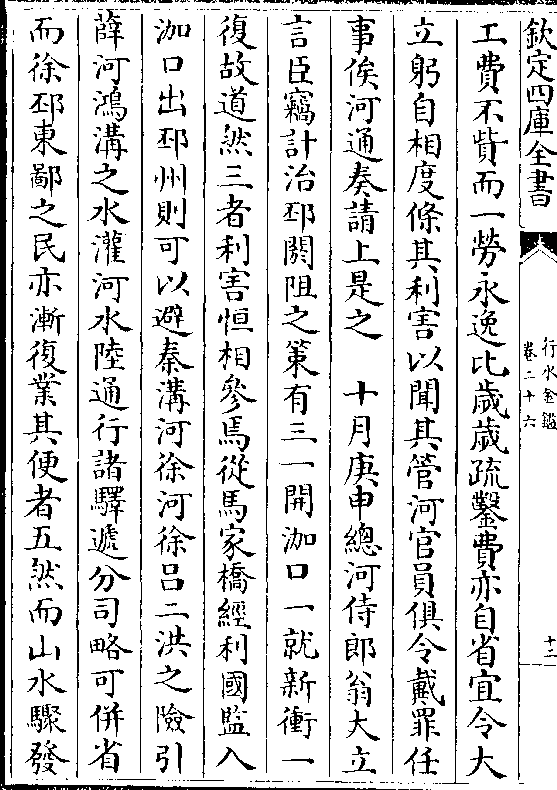 欽定四庫全書
行水金鑑
卷二十六
十二
工費不貲而一勞永逸比歲歲疏鑿費亦自省宜令大
立躬自相度條其利害以聞其管河官員俱令戴罪任
事俟河通奏請上是之　十月庚申總河侍郎翁大立
言臣竊計治邳閼阻之策有三一開泇口一就新衝一
復故道然三者利害恒相參焉從馬家橋經利國監入
泇口出邳州則可以避秦溝河徐河徐呂二洪之險引
薛河鴻溝之水灌河水陸通行諸驛遞分司略可併省
而徐邳東鄙之民亦漸復業其便者五然而山水驟發